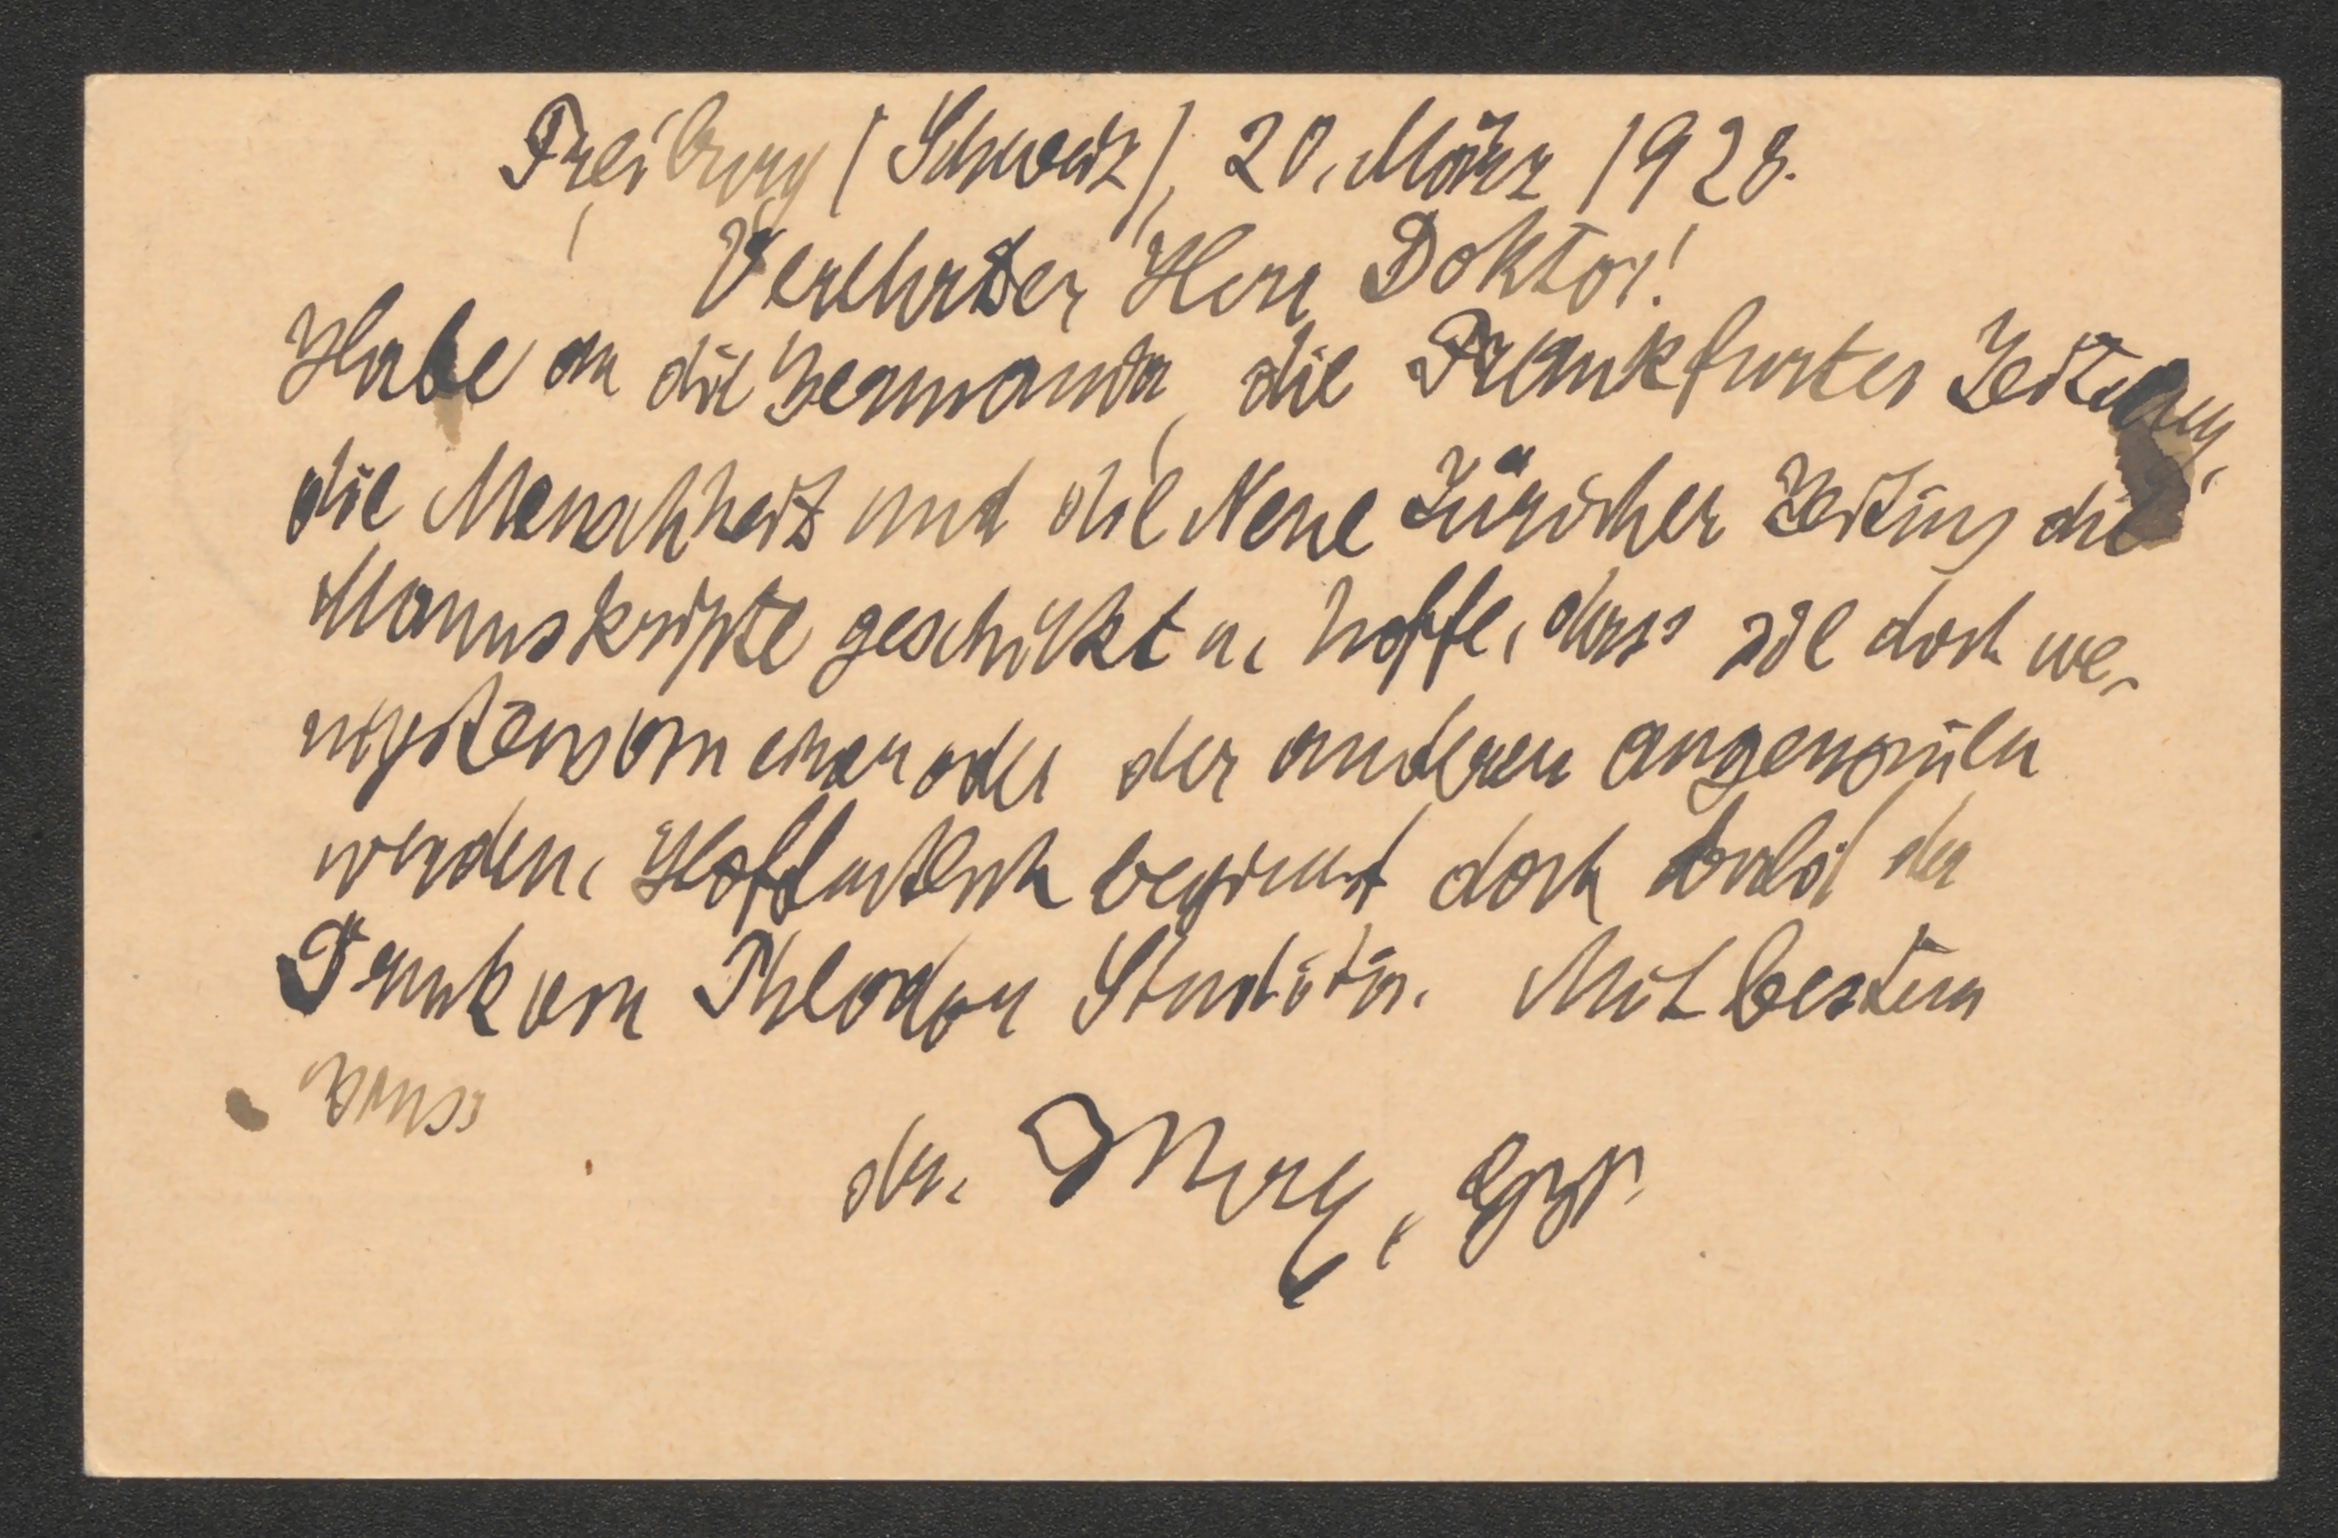 Freiburg (Schweiz), 20. März 1928.
Verehrter Herr Doktor!
Habe an die Germania, die Frankfurter Zeitung,
die Menschheit und die Neue Züricher Zeitung die
Manuskripte geschickt u. hoffe, dass sie doch we-
nigstens von einer oder der anderen angenom̄en
werden. Hoffentlich beginnt doch bald der
Druck vom Theodor Studitā. Mit bestem
Gruss
dr.